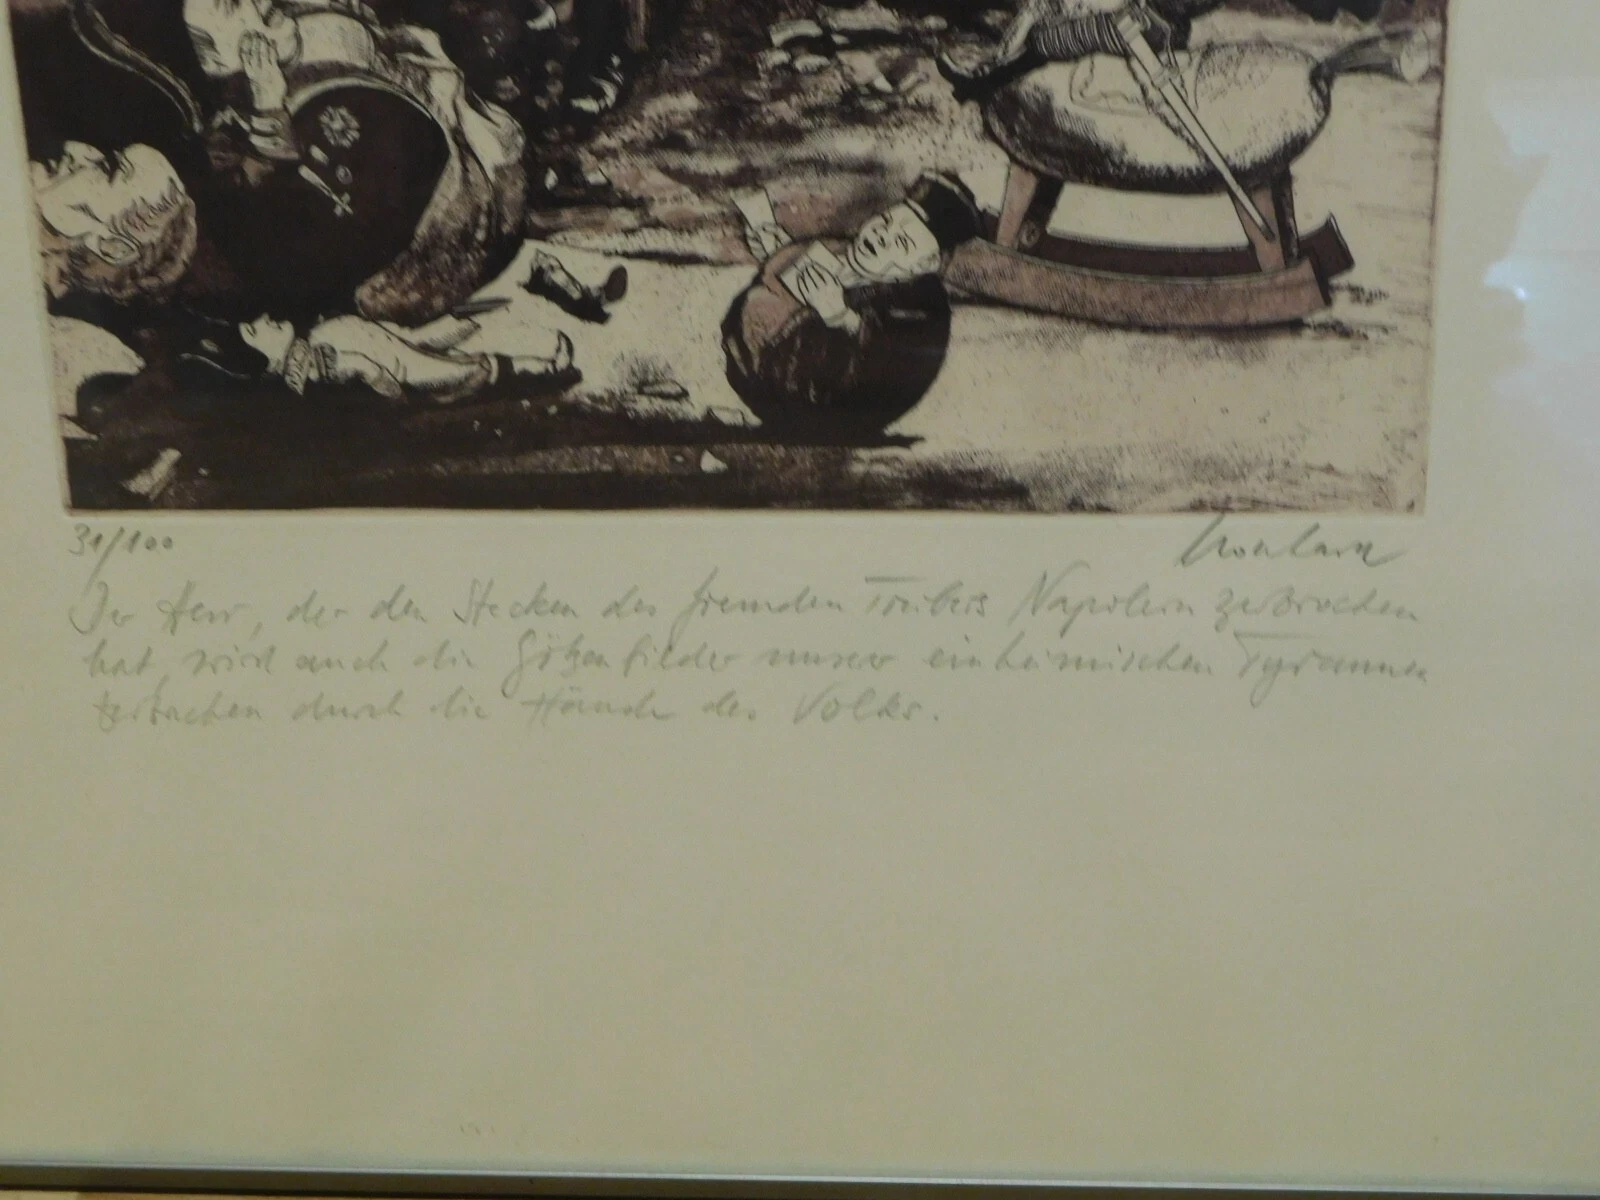 31/100
Der Herr, der den Stecken des fremden Treibers Napoleon zerbrochen
hat, wird auch die Götzenbilder unserer einheimischen Tyrannen
zerbrechen durch die Hände des Volks.